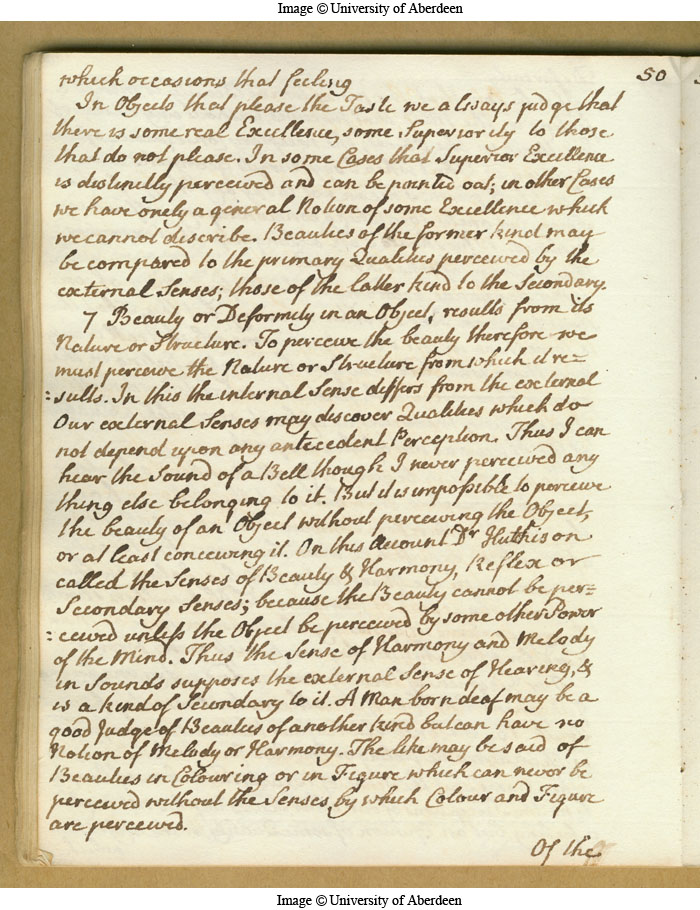 Image © University of Aberdeen
50
which occasions that feeling
In Objects that please the Taste we always judge that
there is some real Excellence, some Superiority to those
that do not please. In some Cases that Superior Excellence
is distinctly perceived and can be pointed out; in other Cases
we have onely a general Notion of some Excellence which
we cannot describe. Beauties of the former kind may
be compared to the primary Qualities perceived by the
external Senses; those of the latter kind to the Secondary.
7 Beauty or Deformity in an Object, results from its
Nature or Structure. To perceive the beauty therefore we
must perceive the Nature or Structure from which it re=
=sults. In this the internal Sense differs from the external
Our external Senses may discover Qualities which do
not depend upon any antecedent Perception. Thus I can
hear the Sound of a Bell though I never perceived any
thing else belonging to it. But it is impossible to perceive
the beauty of an Object without perceiving the Object,
or at least conceiving it. On this Account Dr Huthison
called the Senses of Beauty & Harmony, Reflex or
Secondary Senses; because the Beauty cannot be per=
=ceived unless the Object be perceived by some other Power
of the Mind. Thus the Sense of Harmony and Melody
in Sounds supposes the external Sense of Hearing, &
is a kind of Secondary to it. A Man born deaf may be a
good Judge of Beauties of another kind but can have no
Notion of Melody or Harmony. The like may be said of
Beauties in Colouring or in Figure which can never be
perceived without the Senses by which Colour and Figure
are perceived.
Of the
Image © University of Aberdeen